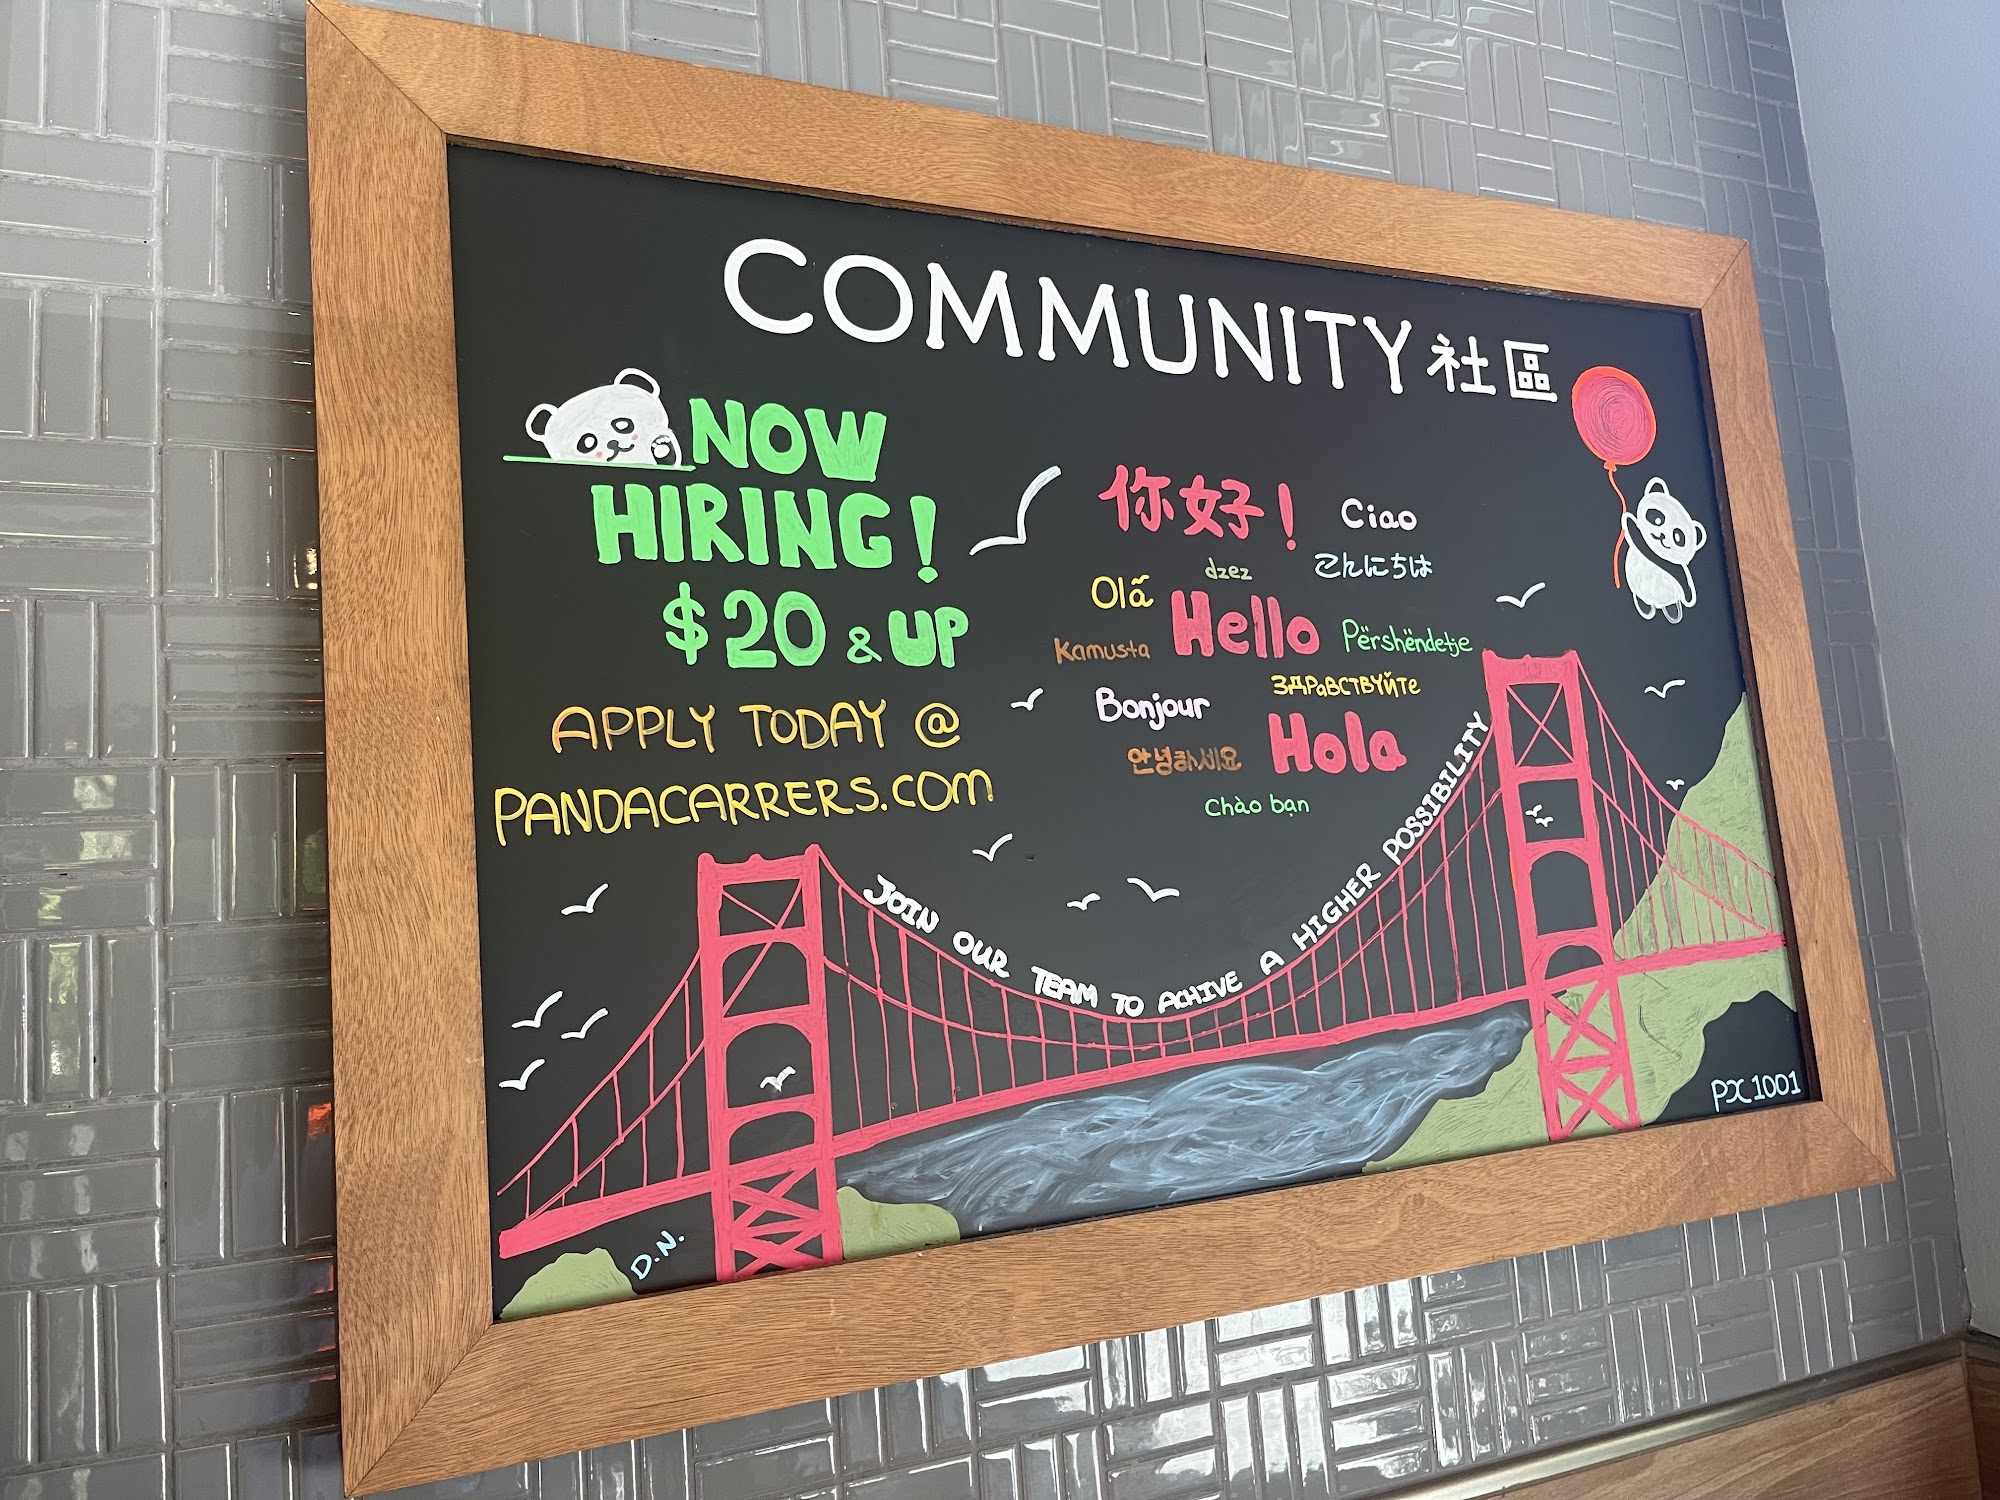 COMMUNITY 社區
NOW
HIRING!
$20 & UP
APPLY TODAY @
PANDACARRERS.COM
你好!
Ciao
dzez
こんにちは
Olá
Hello
Kamusta
Përshëndetje
Bonjour
ЗДРаВСТВУйТе
안녕하세요
Hola
Chào bạn
JOIN OUR TEAM TO ACHIVE A HIGHER POSSIBILITY
D.N.
PX1001